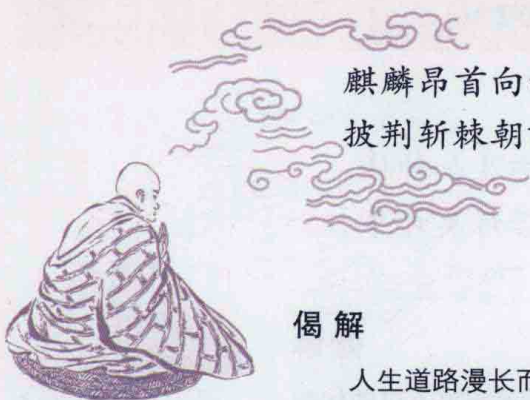 麒麟昂首向
披荆斩棘朝
偈解
人生道路漫长而